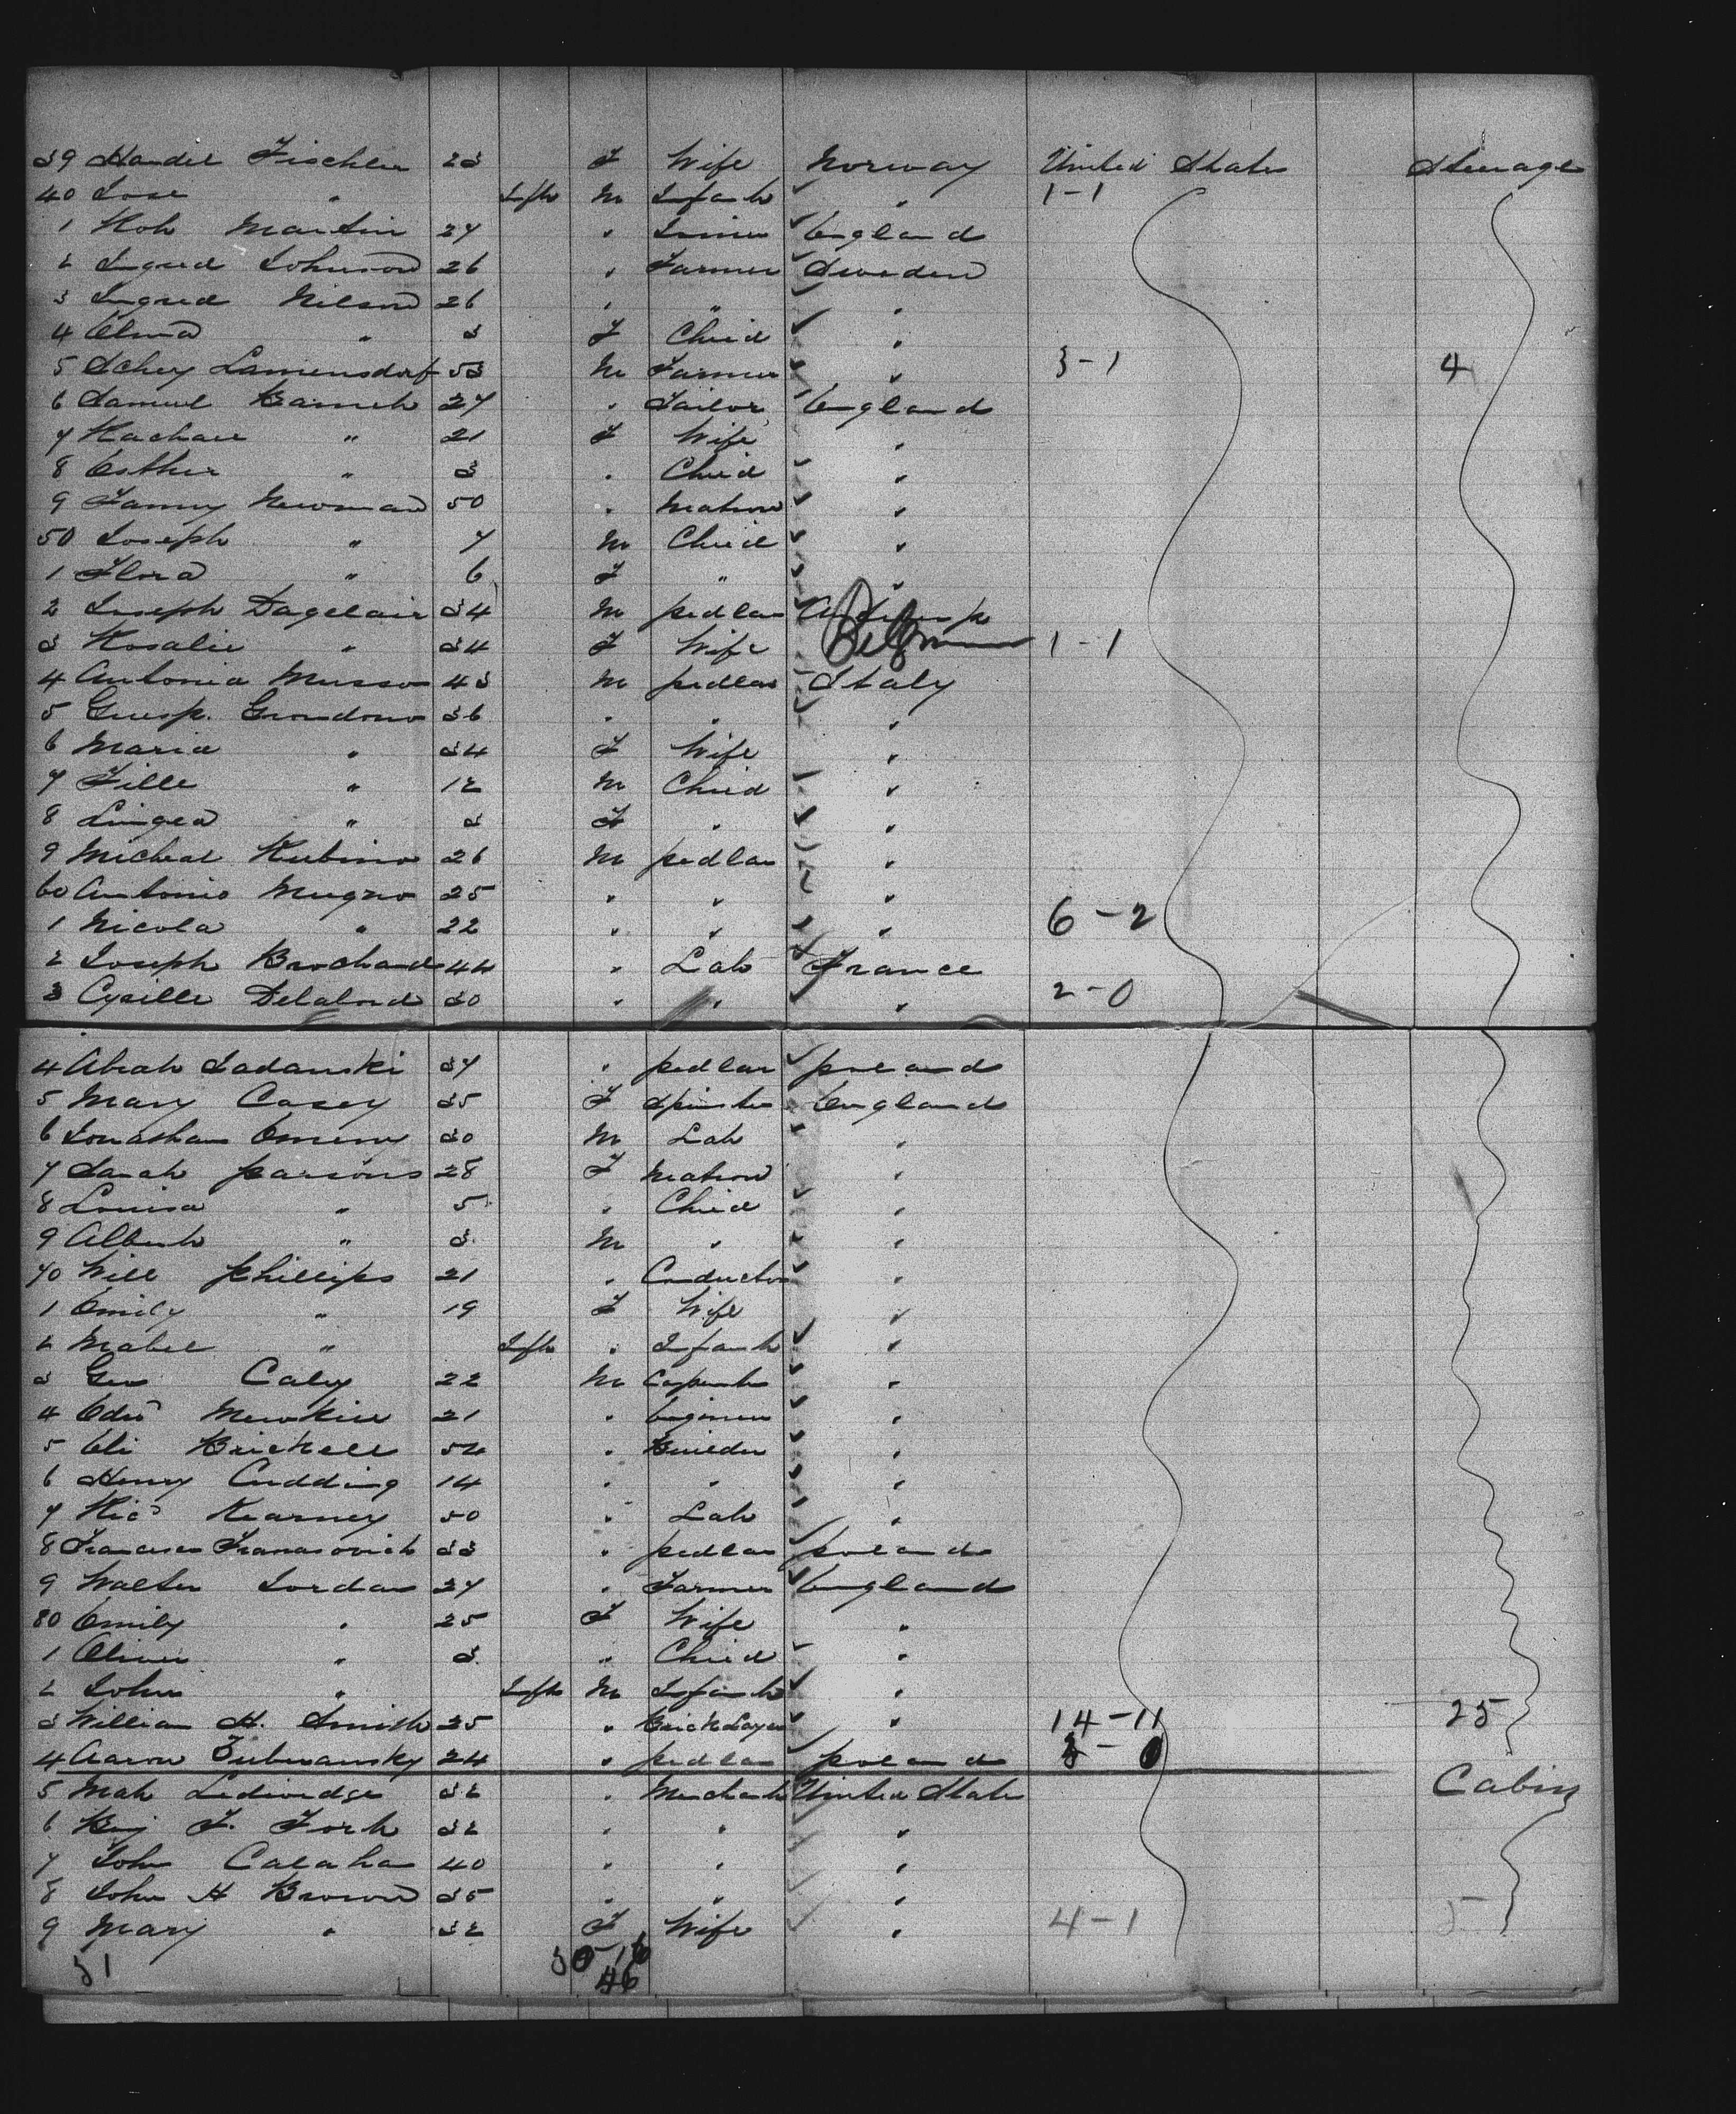 39 Handel Fischler 23 F Wife Norway United States Steerage
40 Jose " Inft M Infant " 1-1
1 Rob Martin 27 " England
2 Ingred Johnson 26 " Farmer Sweden
3 Ingred Nilson 26 " " "
4 Elma " 3 F Child "
5 Schey Lamensdorf 53 M Farmer " 3-1 4
6 Samuel Barnch 27 " Tailor England
7 Rachael " 21 F Wife "
8 Esther " 3 " Child "
9 Fanny Newman 50 " Matron "
50 Joseph " 7 M Child "
1 Flora " 6 F " "
2 Joseph Dagelair 34 M pedlar Antwerp
3 Rosalie " 34 F Wife Belgium 1-1
4 Antonia Musso 43 M pedlar Italy
5 Guisp. Grondono 36 " " "
6 Maria " 34 F Wife "
7 Fille " 12 M Child "
8 Lingea " 3 F " "
9 Micheal Rubino 26 M pedlar "
60 Antonio Mugno 25 " " "
1 Nicola " 22 " " " 6-2
2 Joseph Brochand 44 " Lab France
3 Cyrille Delalond 30 " " " 2-0
4 Abrah Sadanski 37 " pedlar poland
5 Mary Casey 35 F Spinster England
6 Jonathan Emery 30 M Lab "
7 Sarah parsons 28 F Matron "
8 Louisa " 5 " Child "
9 Albert " 3 M " "
70 Will phillips 21 " Conductor "
1 Emily " 19 F Wife "
2 Mabel " Inft " Infant "
3 Geo Caley 22 M Carpenter "
4 Edwd Newkire 21 " Engineer "
5 Eli Brickell 54 " Builder "
6 Henry Cudding 14 " " "
7 Ricd Kearney 50 " Lab "
8 Francisco Franasovich 33 " pedlar poland
9 Walter Jordan 27 " Farmer England
80 Emily " 25 F Wife "
1 Oliver " 3 " Child "
2 John " Inft M Infant "
3 William H. Smith 25 " Brick Layer " 14-11 25
4 Aaron Zuberansky 24 " pedlar poland
5 Mah Lediredge 32 " Merchant United States Cabin
6 Benj F. Fork 32 " " "
7 John Calahan 40 " " "
8 John H Brown 35 " " "
9 Mary " 32 F Wife " 4-1 5
51 30-16
46